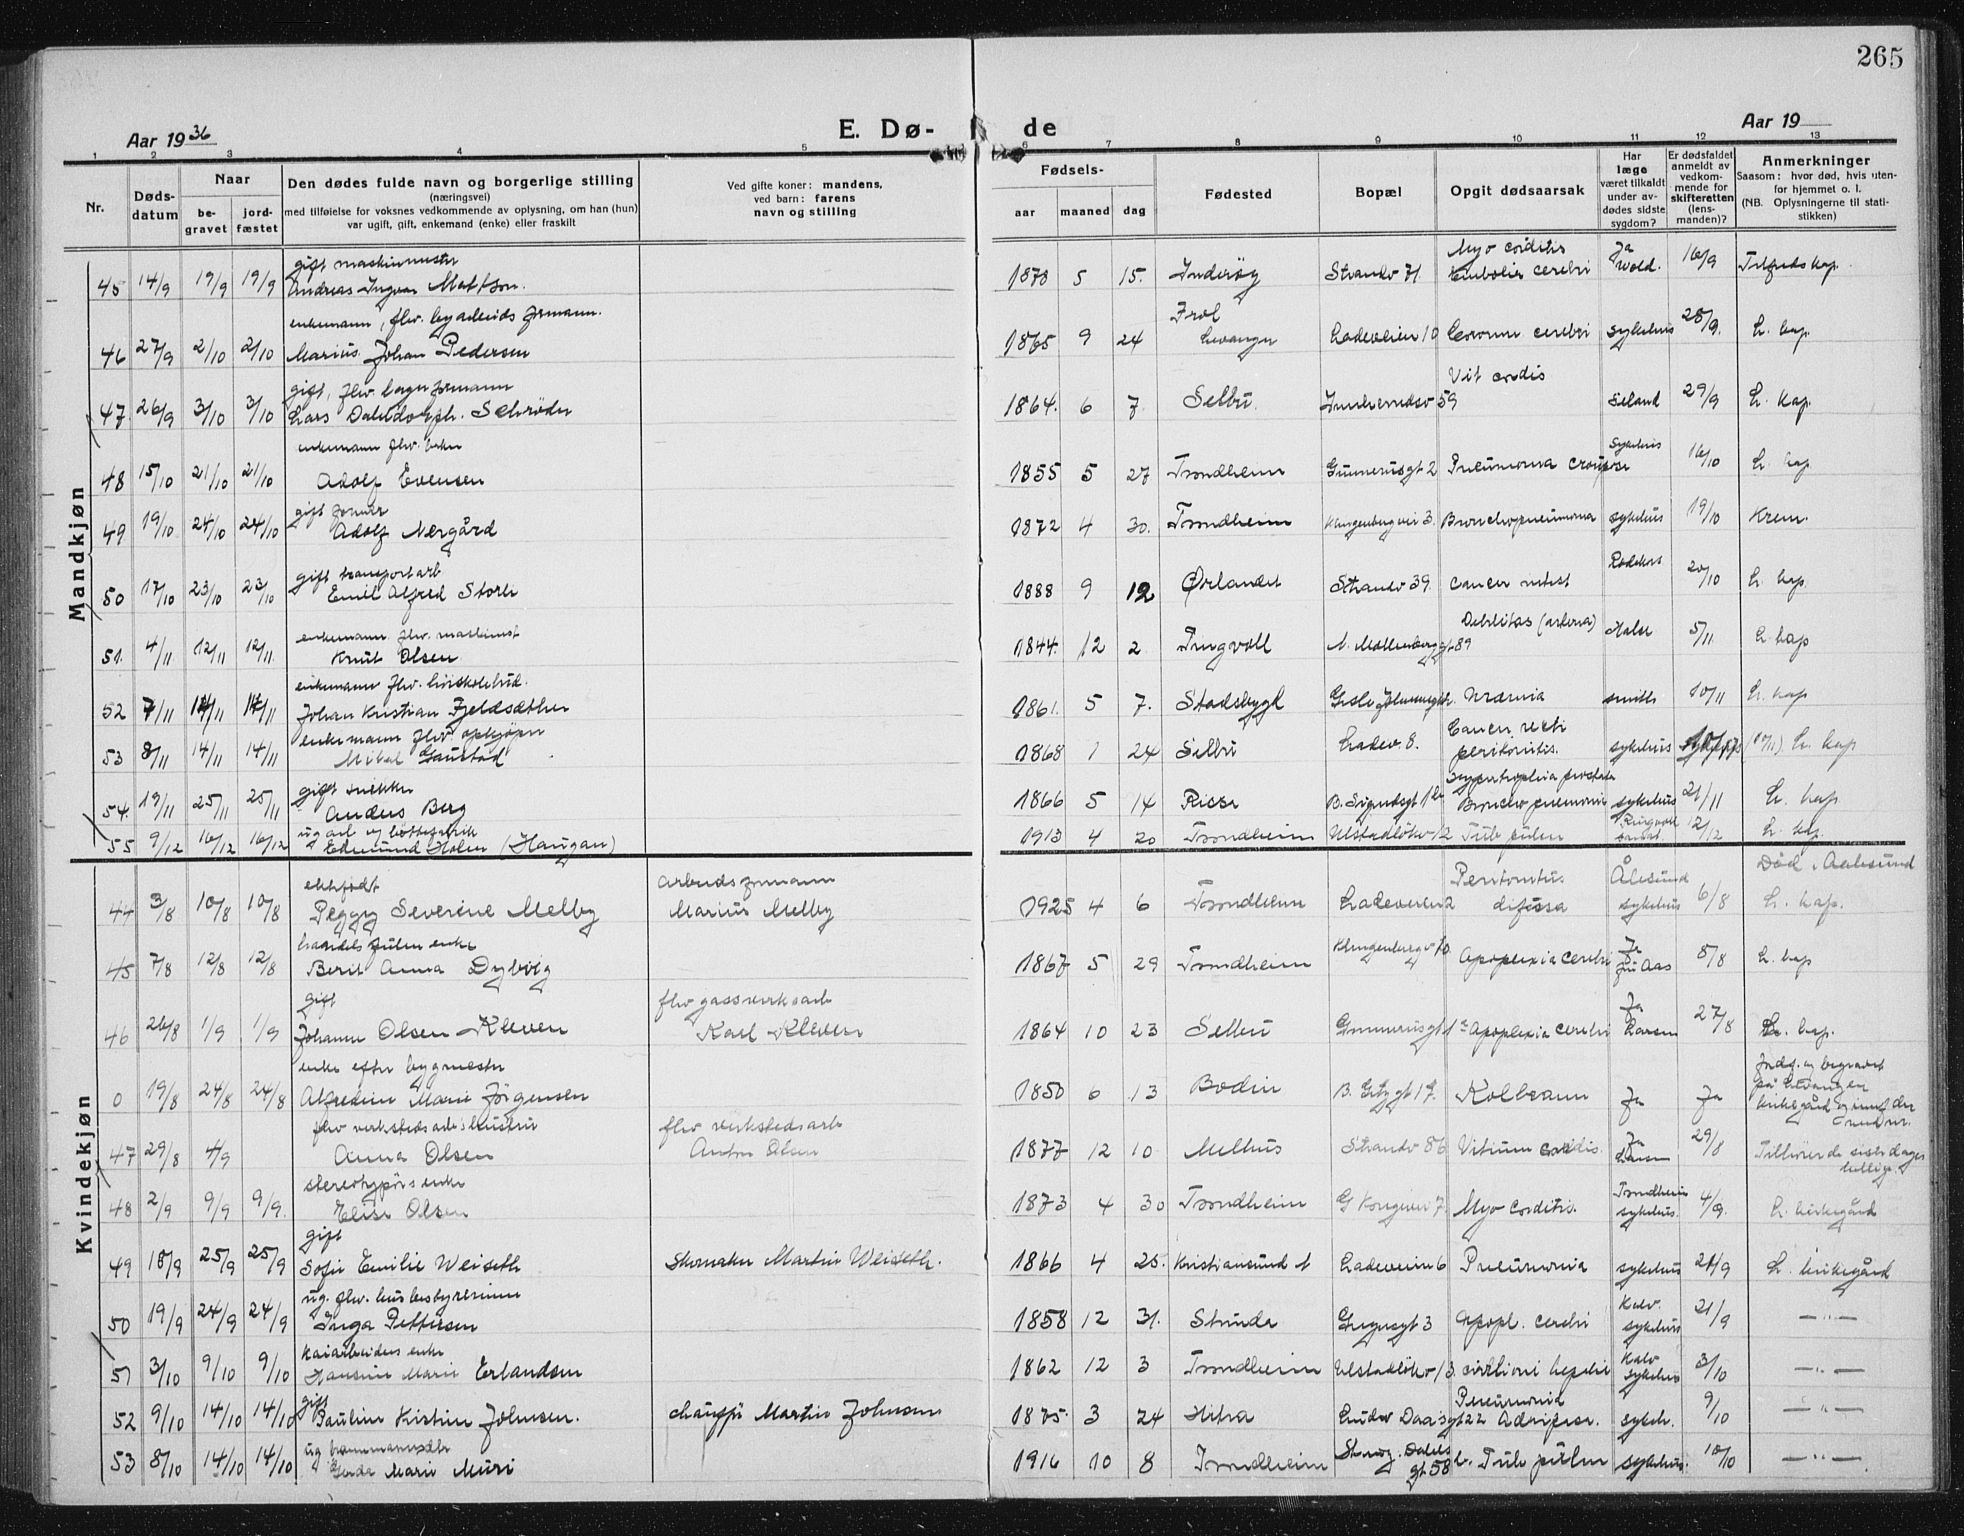 265
Aar 1936
E. Dø-
de
Aar 19
1 2 3 4 5 6 7 8 9 10 11 12 13
Nr.
Døds-
datum
Naar
be-
gravet
jord-
fæstet
Den dødes fulde navn og borgerlige stilling
(næringsvei)
med tilføielse for voksnes vedkommende av oplysning, om han (hun)
var ugift, gift, enkemand (enke) eller fraskilt
Ved gifte koner: mandens,
ved barn: farens
navn og stilling
Fødsels-
aar maaned dag
Fødested
Bopæl
Opgit dødsaarsak
Har
læge
været tilkaldt
under av-
dødes sidste
sygdom?
Er dødsfaldet
anmeldt av
vedkom-
mende for
skifteretten
(lens-
manden)?
Anmerkninger
Saasom: hvor død, hvis uten-
for hjemmet o. l.
(NB. Oplysningerne til stati-
stikken)
Mandkjøn
gift maskinmester Myo corditis Ja
45 14/9 19/9 19/9 Andreas Ingvar Mattson. 1878 5 15. Inderøy Strandv 71 Emboli cerebri Wold. 16/9 Tilfredskap.
enkemann, flv. byarbeids formann. Frol
46 27/9 2/10 2/10 Marius Johan Pedersen 1865 9 24 Levanger Ladeveien 10 cerebri sykehus 28/9 L. kap
gift, flv. lagerformann Vit cordis
47 26/9 3/10 3/10 Lars Schrøder 1864. 6 7. Selbu. Innherredsv 59 Seland 29/9 L. kap.
enkemann flv. Sykehus
48 15/10 21/10 21/10 Adolf Evensen 1855 5 27 Trondheim Gunnerusgt 2 Pneumonia crouposa 16/10 L. kap
gift
49 19/10 24/10 24/10 Adolf Nergård 1872 4 30. Trondheim Klingenbergvei 3. Bronchopneumonia sykehus 19/10 Krem.
gift transportarb
50 17/10 23/10 23/10 Emil Alfred Storli 1888 9 12 Ørlandet Strandv 39. cancer intest 20/10 L. kap.
enkemann flv. maskinist Debilitas
51. 4/11 12/11 12/11. Knut Olsen 1844. 12 2 Tingvoll N. Møllenberggt 89 Halse 5/11 L. kap
enkemann flv.
52 7/11 14/11 14/11 Johan Kristian Fjeldsæther 1861. 5 7. Stadsbygd Uræmia smitts 10/11 L. kap
enkemann flv. opkjøper Cancer recti
53 8/11 14/11 14/11 Mikal Gaustad 1868 1 24 Selbu Ladev. 8. peritonitis. sykehus (10/11) L. kap
gift snekker Hypertrophia prostata
54. 19/11 25/11 25/11 Anders Berg 1866 5 14 Rissa B. Sigurdsgt Broncho pneumonia sykehus 21/11 L. kap.
ug arb Ringvål
55 9/12 16/12 16/12 Edmund Holen (Haugan) 1913 4 20 Trondheim Ulstadløkv 2 Tub pulm 12/12 L. kap.
Kvindekjøn
ektefødt arbeidsformann Peritonitis Ålesund Død i Aalesund
44 3/8 10/8 10/8 Peggy Severine Melby Marius Melby 1925 4 6 Trondheim Ladeveien 2 difussa sykehus 6/8 L. kap.
enke Klingenbergv 10 Ja
45 7/8 12/8 12/8 Berit Anna Dybvig 1867 5 29 Trondheim Apoplexia cerebri Aas 8/8 L. kap
gift flv gassverksarb Ja
46 26/8 1/9 1/9 Johanna Olsen Kleven Karl Kleven 1864 10 23 Selbu Gunnerusgt 1 Apoplexia cerebri Larsen 27/8 L. kap.
enke efter bygmester Indf. og begravet
0 19/8 24/8 24/8 Alfredine Marie Jörgensen 1850 6 13 Bodin 17. Kolbrann Ja Ja på Levanger
kirkegård og innf der
flv verkstedsarb. hustru flv verkstedsarb Ja
47 29/8 4/9 Anna Olsen Anton Olsen 1877 12 10 Melhus Strandv 86 Vitium cordis. Larsen 29/8 Tilhører de siste dagers
hellige.
stereotypørs enke Trondheim
48 2/9 9/9 9/9. Elise Olsen 1873 4 30 Trondheim G Kongevei 7. Myo corditis. sykehus. 4/9. L. kirkegård
gift
49 18/9 25/9 25/9 Sofie Emilie Weiseth Skomaker Martin Weiseth. 1866 4 25. Kristiansund N Ladeveien 6 Pneumonia sykehus 21/9 L. kirkegård
ug. flv. husbestyrerinne
50 19/9 24/9 24/9 Inga Pettersen 1858 12 31. Strinda 3 Apopl. cerebri sykehus 21/9 —"—
kaiarbeiders enke
51 3/10 9/10 9/10 Hansine Marie Erlandsen 1862 12 3 Trondheim Ulstadløkv 13. sykehus 3/10 —"—
gift Pneumonia
52 9/10 14/10 14/10 Pauline Kristine Johnsen. chauffør Martin Johnsen 1875. 3 24 Hitra Daa'sgt 22 sykeh. 9/10 —"—
ug
53 8/10 14/10 14/10 Gerda Marie Muri 1916 10 8 Trondheim gt 58 b. Tub pulm sykehus. 10/10 —"—